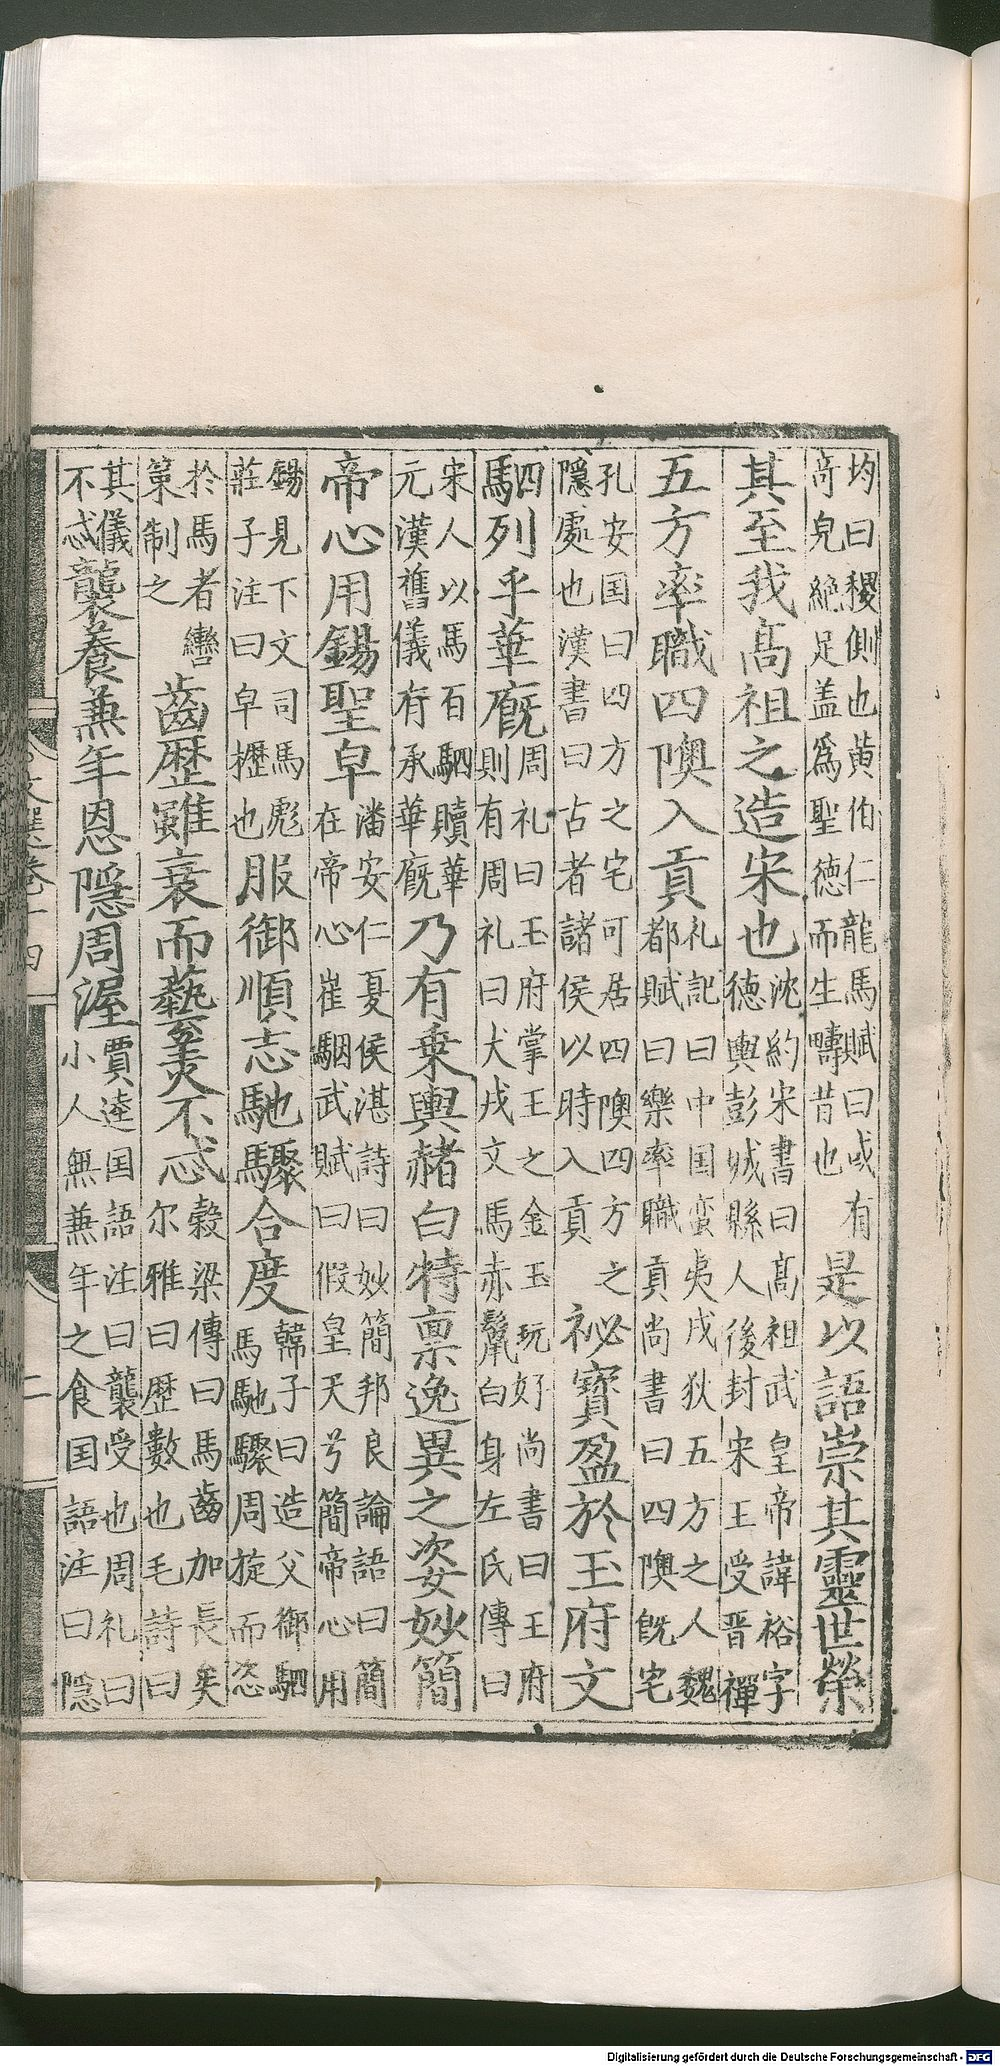 均曰稷側也黄伯仁龍馬賦曰或有
竒皃絶足盖爲聖德而生疇昔也
是以語崇其靈世榮
其至我髙祖之造宋也
沈約宋書曰髙祖武皇帝諱裕字
德輿彭城縣人後封宋王受晋禪
五方率職四隩入貢
礼記曰中国蛮夷戎狄五方之人魏
都賦曰樂率職貢尚書曰四隩旣宅
孔安国曰四方之宅可居四隩四方之
隱處也漢書曰古者諸侯以時入貢
祕寳盈於玉府文
駟列乎華廐
周礼曰玉府掌王之金玉玩好尚書曰王府
則有周礼曰犬戎文馬赤鬣白身左氏傳曰
宋人以馬百駟贖華
元漢舊儀有承華廐
乃有乗輿赭白特禀逸異之姿妙簡
帝心用錫聖皁
潘安仁夏侯湛詩曰妙簡邦良論語曰簡
在帝心崔駰武賦曰假皇天兮簡帝心用
錫見下文司馬彪
莊子注曰皁櫪也
服御順志馳驟合度
韓子曰造父御駟
馬馳驟周旋而恣
於馬者轡
策制之
齒歴雖衰而藝美不忒
榖梁傳曰馬齒加長矣
尔雅曰歴數也毛詩曰
其儀
不忒
襲養兼年恩隱周渥
賈逵国語注曰襲受也周礼曰
小人無兼年之食国語注曰隱
文選卷十四
二
Digitalisierung gefördert durch die Deutsche Forschungsgemeinschaft - DFG